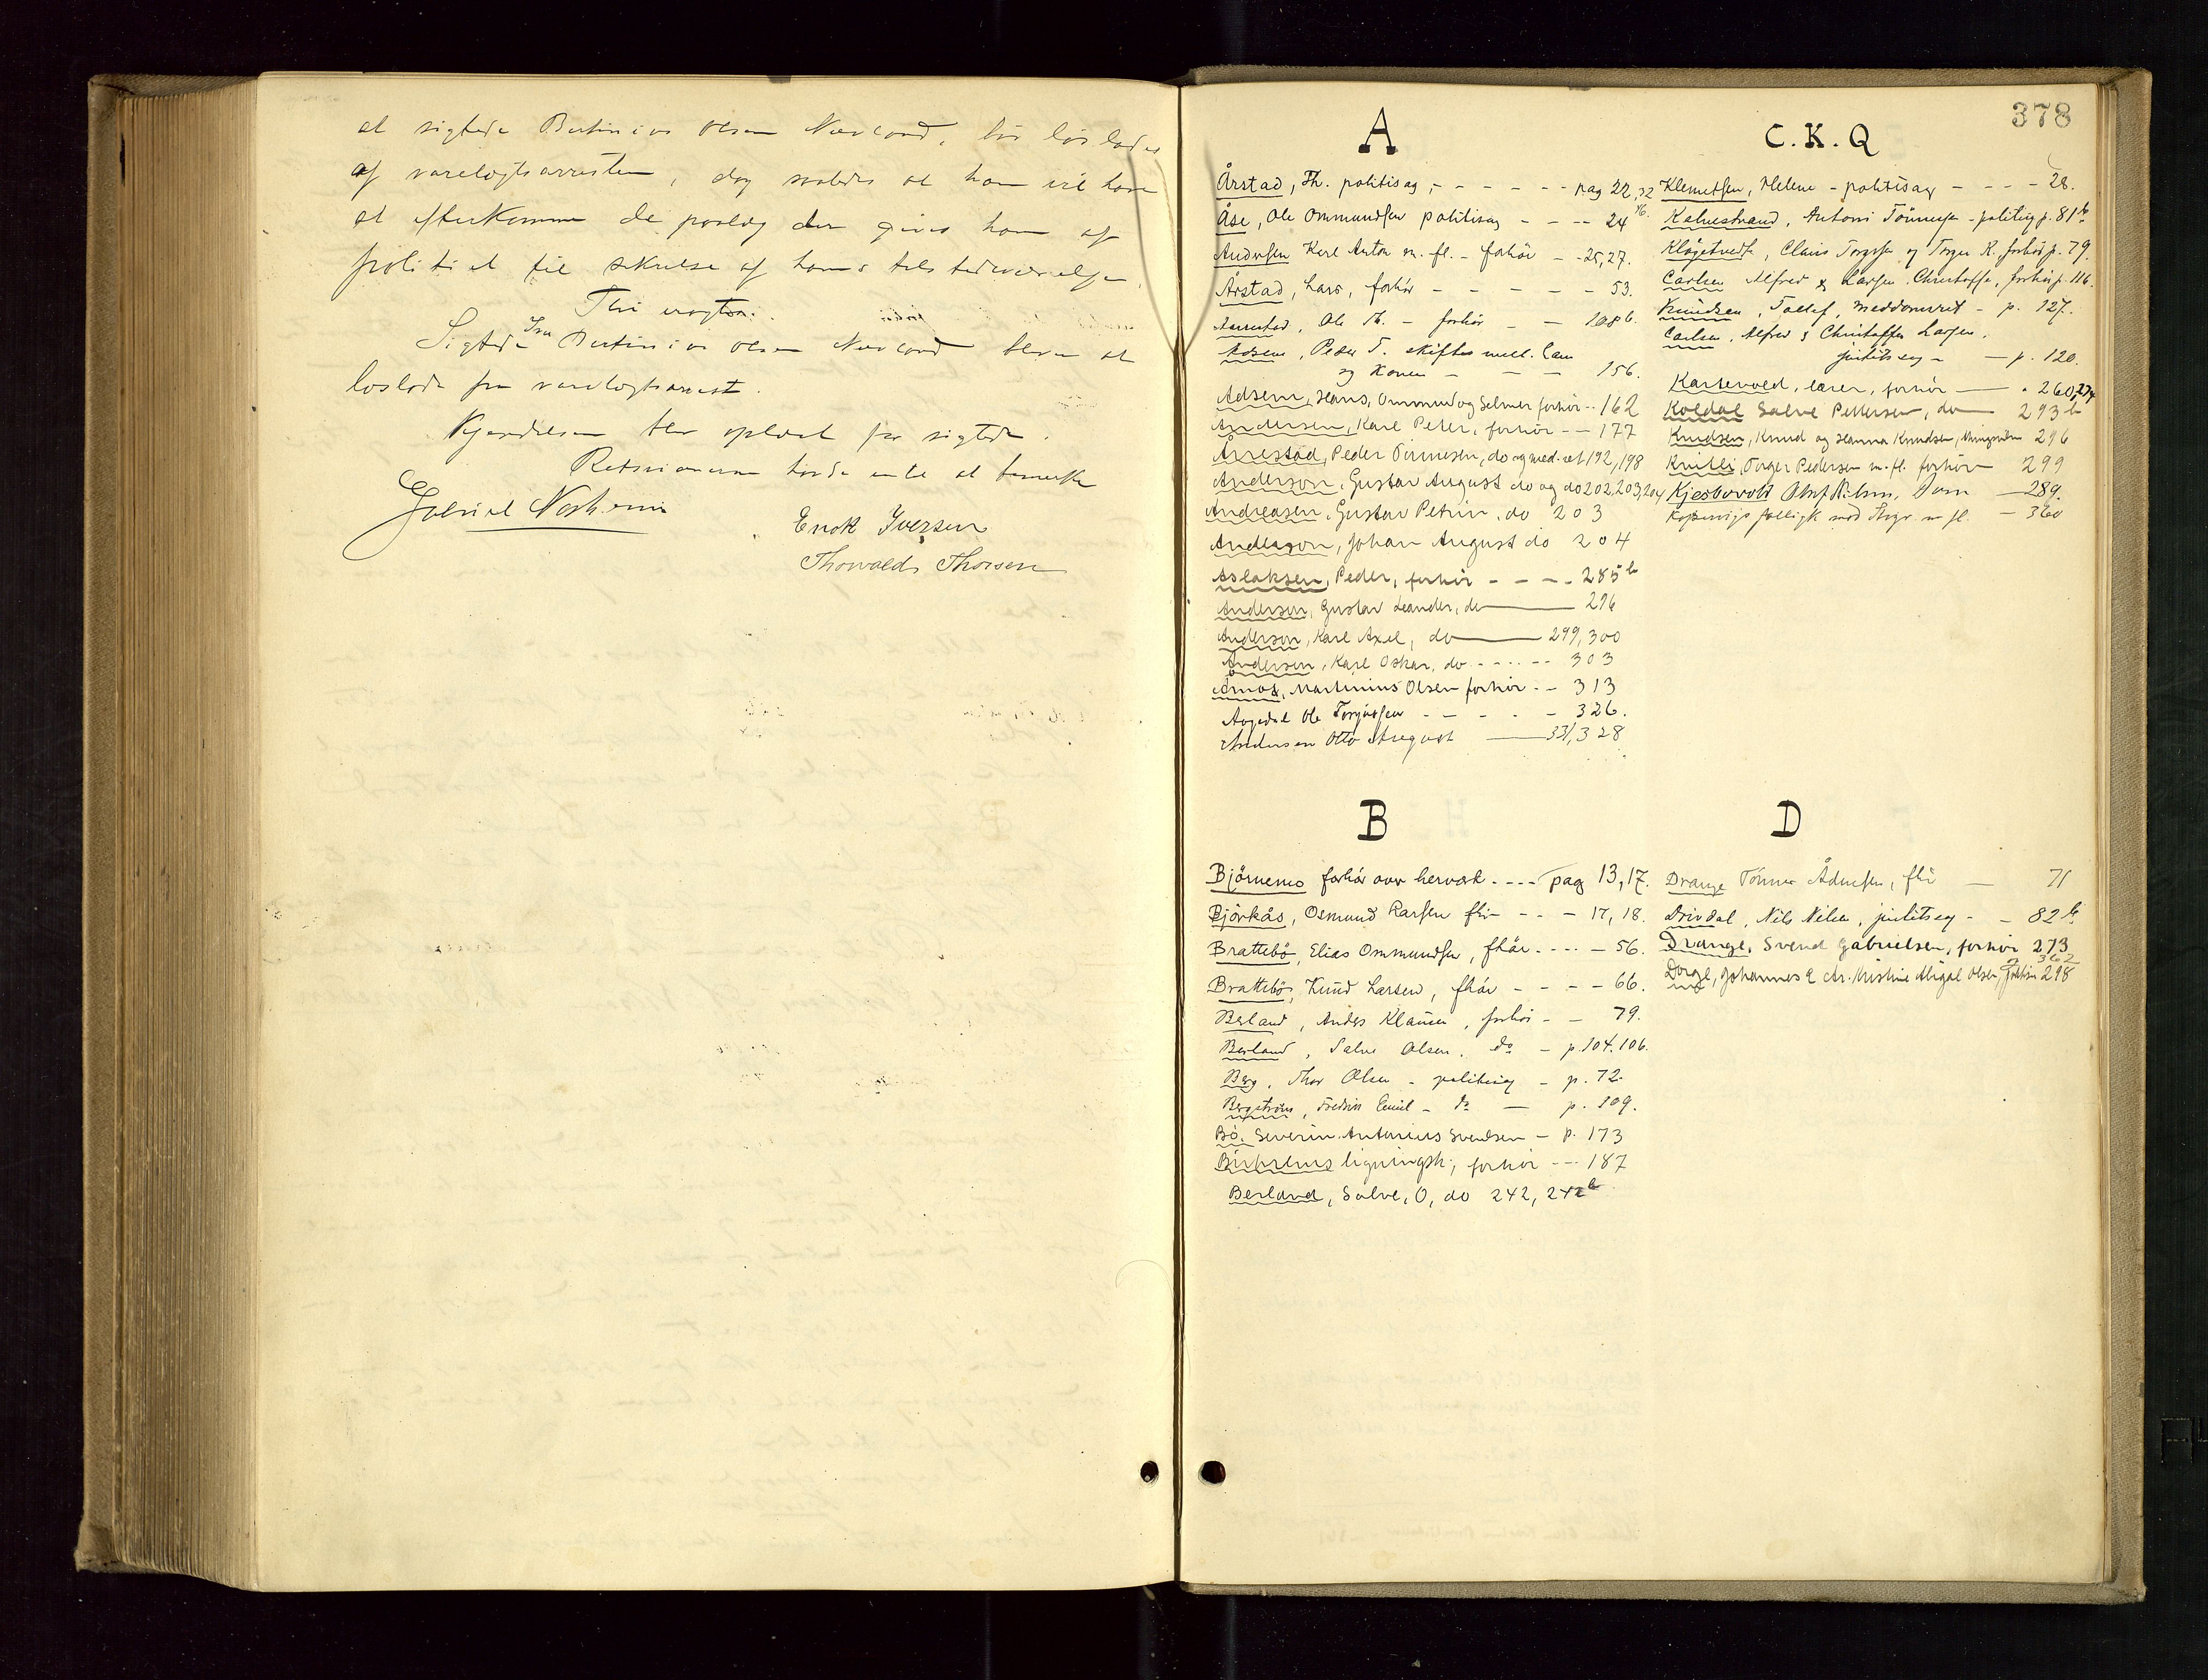 at sigtede Bertinius Olsen Nevland, bør løslades
af varetægtsarresten, dog saaledes at han vil have
at efterkomme de paalæg der gives ham af
politiet til sikrelse af hans tilstedeværelse.
Thi eragtes:
Sigtede Bertinius Olsen Nevland bliver at
løslade fra varetægtsarrest.
Kjendelsen blev oplæst for sigtede.
Retsvidnerne havde intet at bemerke
Enok Iversen
Thorvald Thorsen
378
A
Årstad, Th. politisag, - - - - - - pag 22, 32
Åse, Ole Ommundsen politisag - - - 24
Andersen Karl Anton m. fl. - forhör - - 25, 27.
Årstad, Lars, forhör - - - - - 53.
Aarrestad, Ole Th. - forhör - - 108 b.
Adsem, Peder T. skiftes mell. ham
og Konen - - - 156.
Adsem, Hans, Ommund og Selmer forhör - - 162
Andersen, Karl Peter, forhör - - 177
Årrestad, Peder Tönnesen, do og med. ret 192, 198
Anderson, Gustav August do og do 202, 203, 204
Andreasen, Gustav Petrin, do 203
Anderson, Johan August do 204
Aslaksen, Peder, forhör - - - - 285 b
Anderson, Gustav Leander, do 296
Anderson, Karl Axel, do 299, 300
Andersen, Karl Oskar, do - - - - 303
Amos, Martinius Olsen forhör - - 313
Ole Torgiussen - - - - 326.
Andersen Otto August 331, 328
B
Björnemo forhör over hervørk - - - - pag 13, 17.
Björkås, Osmund Larsen - - - 17, 18.
Brattebö, Elias Ommundsen, fhör - - - - 56.
Brattebö, Knud Larsen, fhör - - - - 66.
Berland, Anders Klausen, forhör - - 79.
Berland, Salve Olsen, do - p. 104. 106.
Berg, Thor Olsen - politisag - p. 72.
Bergström, Fredrik Emil - do - p. 109.
Bö, Severin Antonius Svendsen - p. 173
ligningsk., forhör - - - 187
Berland, Salve, O, do 242, 242 b
C. K. Q
Klemetsen, Helene - politisag - - - - 28.
Kalvestrand, Antoni Tönnesen - politisag p. 81 b
Klögetvedt, Claus Torgersen og Torger K. forhör p. 79.
Carlsen Alfred & Larsen, Christoffer, forhör p. 116.
Knudsen, Tollef, meddomsret - p. 127.
Carlsen, Alfred & Christoffer Larsen,
politisag - - p. 120.
Kartevold, lærer, forhör - 260, 274
Koldal Salve Pettersen, do 293 b
Knudsen, Knud og Hanna Knudsen, 296
Knitli, Torger Pedersen m. fl. forhör 299
Kjesbovold Olaf Nilsen, Dom 289.
Kopervigs m. fl. 360
D
Drange Tönnes Ådnesen, - 71
Drivdal, Nils Nilsen, politisag - - 82 b
Drange, Svend Gabrielsen, forhör 273
og 362
Dorgl, Johannes E Ar. Kristine Abigal Olsen, forhör 298